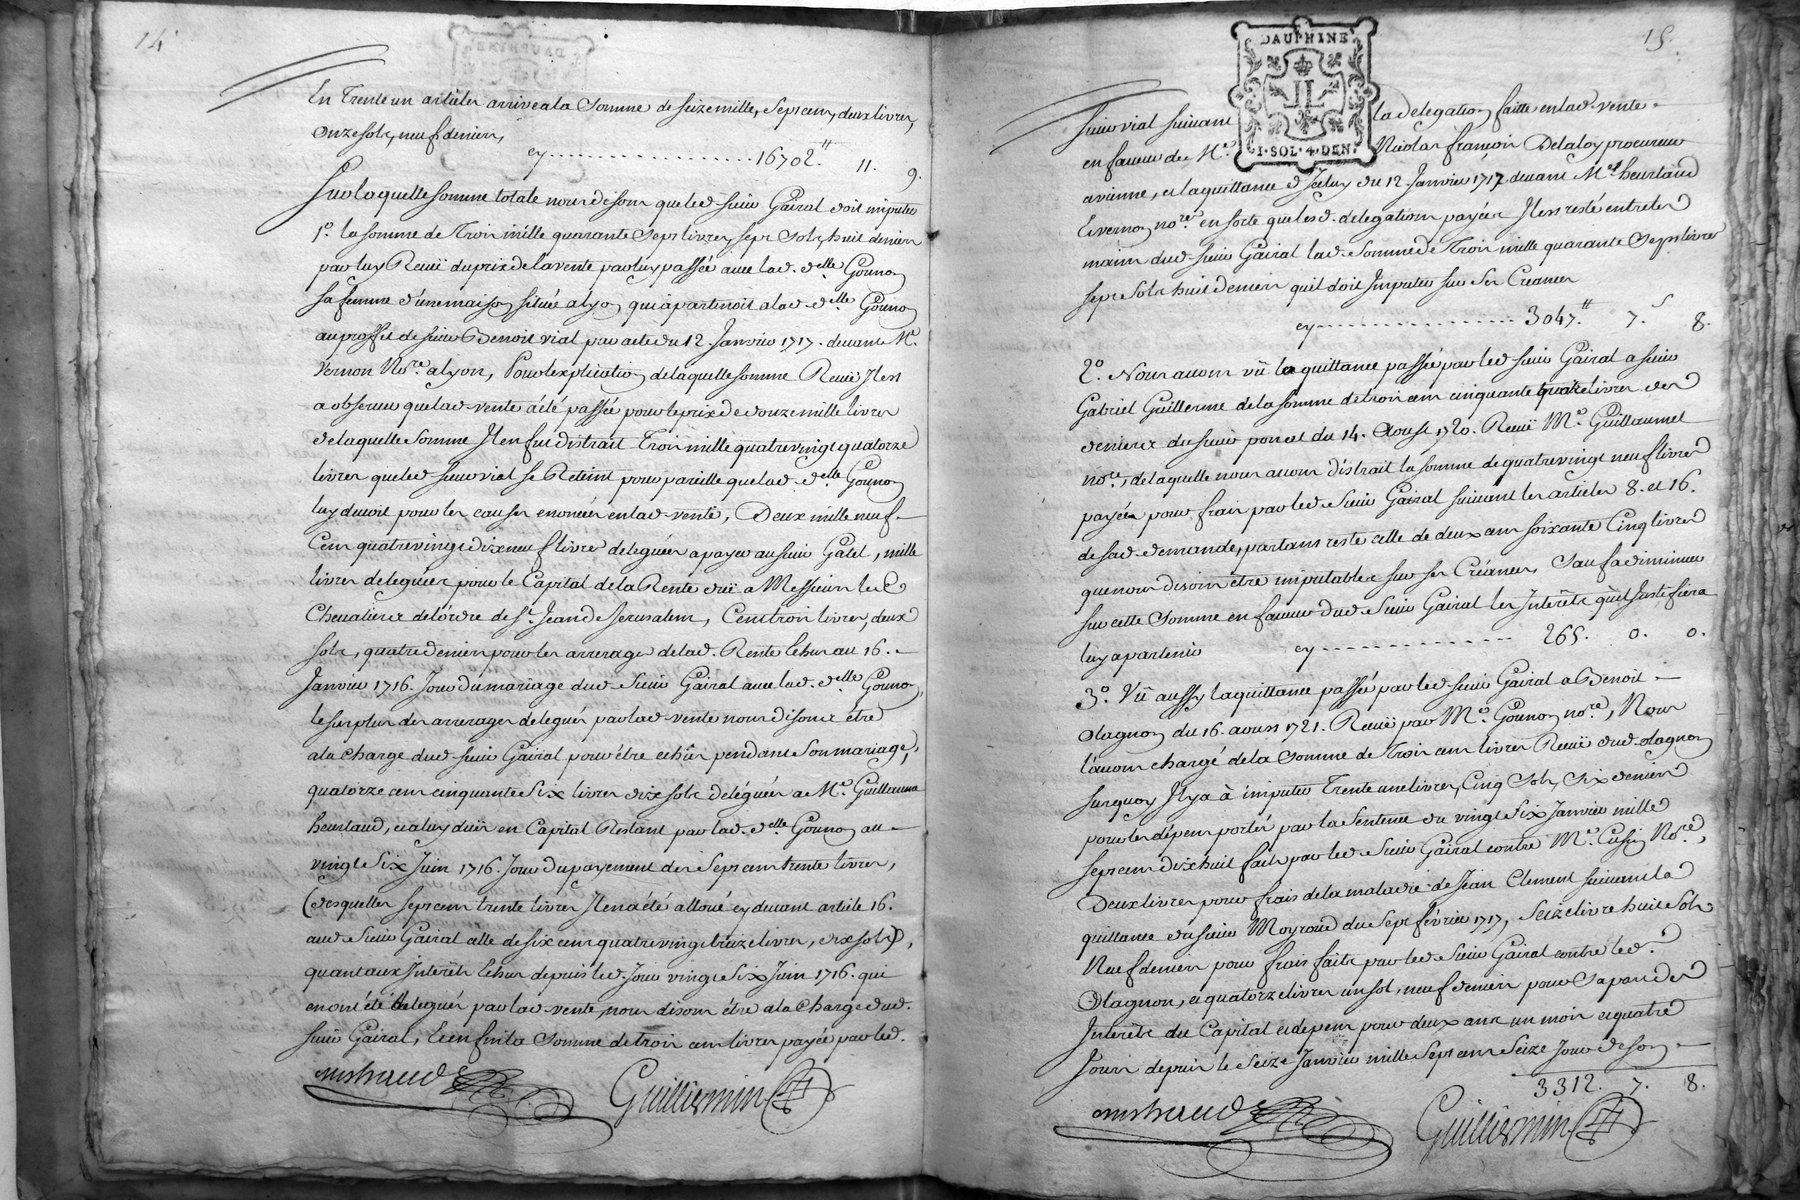 14
En Trente un articles arrive a la Somme de seize mille, Sept cens, deux livres,
onze sols, neuf deniers,
cy .................... 16702.ʰ 11. 9.
Sur laquelle somme totale nous disons que led. sieur Gairal doit imputer
1.° la somme de Trois mille quarante Sept livres, sept Sols, huit deniers
par luy Receu du prix de la vente par luy passée avec lad. d.elle Gounon
sa femme d'une maison située a lyon qui apartenoit a lad. d.elle Gounon
au proffit de sieur Benoit vial par acte du 12. Janvier 1717. devant M.e
Vernon No.re a lyon, Pour lexplication de laquelle somme Receue Il est
a observer que lad. vente a été passée pour le prix de douze mille livres
de laquelle Somme Il en fut distrait Trois mille quatre vingt quatorze
livres que led. sieur vial se Retint pour pareille que lad. d.elle Gounon
luy devoit pour les causes enoncées en lad. vente, Deux mille neuf
Cens quatre vingt dix neuf livres deleguées a payer au sieur Gatet, mille
livres deleguées pour le Capital de la Rente due a Messieurs les
Chevaliers de lordre de S.t Jean de Jerusalem, Cent trois livres, deux
sols, quatre deniers pour les arrerages de lad. Rente Echus au 16.
Janvier 1716. Jour du mariage dud. Sieur Gairal avec lad. d.elle Gounon,
le surplus des arrerages delegués par lad. vente nous disons être
a la charge dud. sieur Gairal pour être echûs pendant Son mariage,
quatorze cens cinquante Six livres dix sols déléguées a M.e Guillaume
heurtaud, et a luy dües en Capital Restant par lad. d.elle Gounon au
vingt Six Juin 1716. Jour du payement des Sept cens trente livres,
(desquelles sept cens trente livres Il en a été alloué cy devant article 16.
aud. Sieur Gairal celle de six cens quatre vingt treize livres, dix sols),
quant aux Interêts Echus depuis led. Jour vingt Six Juin 1716. qui
en ont été delegués par lad. vente, nous disons être a la charge dud.
sieur Gairal, Et enfin la Somme de trois cens livres payée par led.
Guilliermin
15.
DAUPHINE
1·SOL·4·DEN.
sieur vial suivant la delegation faitte en lad. vente
en faveur de M.e Nicolas françois Delaloy procureur
a vienne, et la quittance d'Iceluy du 12. Janvier 1717. devant M.es heurtaud
Et vernon no.res en sorte que lesd. delegations payées Il est resté entre les
mains dud. sieur Gairal lad. Somme de Trois mille quarante Sept livres
sept Sols huit deniers quil doit Imputer sur Ses Creances
cy .................... 3047.ʰ 7.ˢ 8.
2.° Nous avons vû la quittance passée par led. sieur Gairal a sieur
Gabriel Guillerme de la somme de trois cens cinquante quatre livres des
deniers du sieur poncet du 14. Aoust 1720. Receu M.e Guillaumet
no.re, de laquelle nous avons distrait la somme de quatre vingt neuf livres
payées pour frais par led. Sieur Gairal suivant les articles 8. et 16.
de sad. demande, partant reste celle de deux cens soixante Cinq livres
que nous disons être imputables sur ses Créances, Sauf a diminuer
sur cette Somme en faveur dud. Sieur Gairal les Interêts qu'il Justifiera
luy apartenir cy .................... 265. 0. 0.
3.° Vû aussy la quittance passée par led. sieur Gairal a Benoit
Olagnon du 16. aoust 1721. Receue par M.e Gounon no.re, Nous
l'avons chargé de la Somme de Trois cens livres Receue dud. olagnon
surquoy Il y a à imputer Trente une livres, Cinq Sols, Six deniers
pour les dépens portés par la Sentence du vingt Six Janvier mille
sept cens dix huit faits par led. Sieur Gairal contre M.e Cusin No.re,
Deux livres pour frais de la maladie de Jean Clement suivant la
quittance du sieur Moyroud du Sept février 1717, Seize livres huit Sols
Neuf deniers pour frais faits par led. Sieur Gairal contre led.
Olagnon, et quatorze livres un sol, neuf deniers pour Sa part des
Interêts du Capital et depens pour deux ans un mois et quatre
Jours depuis le Seize Janvier mille Sept cens Seize Jour de son
3312. 7. 8.
Guilliermin